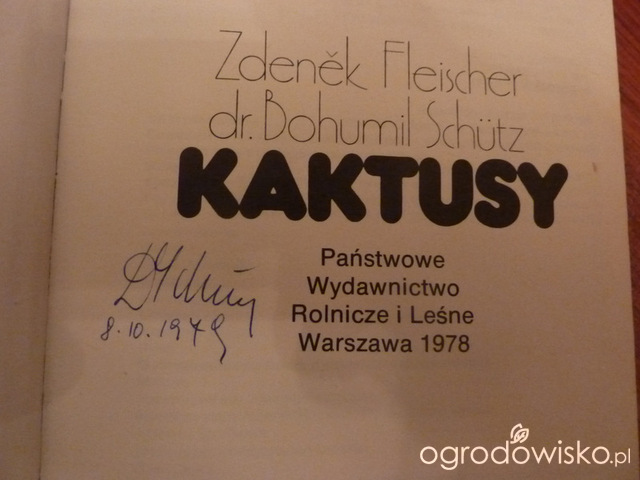 Zdeněk Fleischer
dr. Bohumil Schütz
KAKTUSY
Państwowe
Wydawnictwo
Rolnicze i Leśne
Warszawa 1978
8.10.1979
ogrodowisko.pl